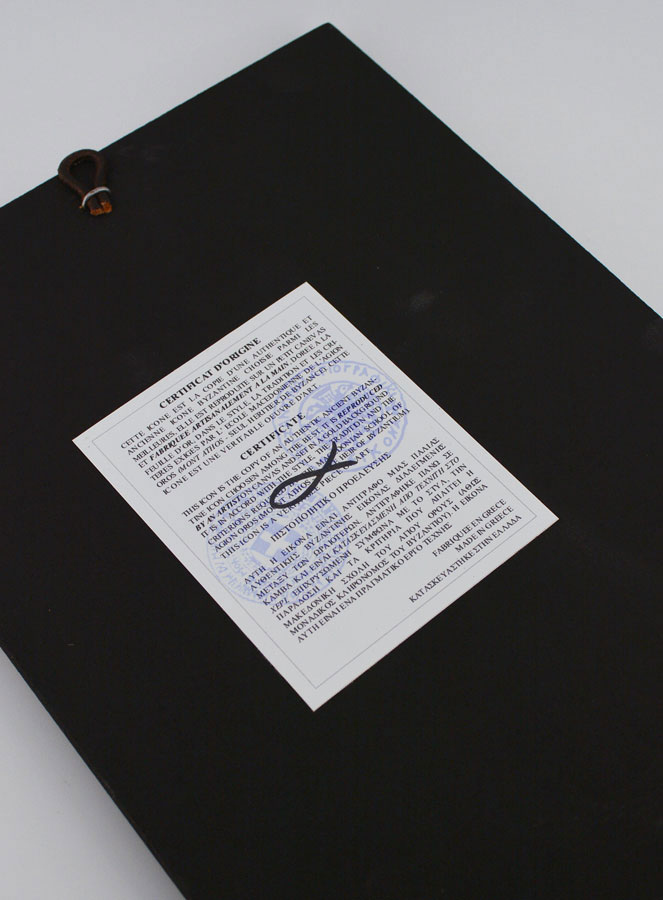 CERTIFICAT D'ORIGINE
CETTE ICONE EST LA COPIE D'UNE AUTHENTIQUE ET
ANCIENNE ICONE BYZANTINE CHOISIE PARMI LES
MEILLEURES, ELLE EST REPRODUITE SUR UN PETIT CANEVAS
ET FABRIQUEE ARTISANALEMENT A LA MAIN DOREE A LA
FEUILLE D'OR, DANS LE STYLE, LA TRADITION ET LES CRI-
TERES EXIGES PAR L'ECOLE MACEDONIENNE DE L'AGION
OROS (MONT ATHOS - SEUL HERITIER DE BYZANCE) CETTE
ICONE EST UNE VERITABLE OEUVRE D'ART.
CERTIFICATE
THIS ICON IS THE COPY OF AN AUTHETIC ANCIENT BYZAN-
TINE ICON CHOOSEN AMONG THE BEST. IT IS REPRODUCED
BY AN ARTIST ON CANVAS AND SET IN A GOLD BACKGROUND.
IT IS IN ACCORD WITH THE STYLE, THE TRADITION AND
CRITERIONS REQUIRED MACEDONIAN SCHOOL OF
AGION OROS (MOUNT ATHOS HEIR OF THE BYZANTIUM)
THIS ICON IS A VERITABLES PIECE OF ART
ΠΙΣΤΟΠΟΙΗΤΙΚΟ ΠΡΟΕΛΕΥΣΗΣ
ΑΥΤΗ Η ΕΙΚΟΝΑ ΕΙΝΑΙ ΑΝΤΙΓΡΑΦΟ ΜΙΑΣ ΠΑΛΙΑΣ
ΑΥΘΕΝΤΙΚΗΣ ΒΥΖΑΝΤΙΝΗΣ ΕΙΚΟΝΑΣ ΔΙΑΛΕΓΜΕΝΗΣ
ΜΕΤΑΞΥ ΤΩΝ ΩΡΑΙΟΤΕΡΩΝ, ΑΝΤΙΓΡΑΦΗΚΕ ΠΑΝΩ ΣΕ
ΚΑΜΒΑ ΚΑΙ ΕΙΝΑΙ ΚΑΤΑΣΚΕΥΑΣΜΕΝΗ ΑΠΟ ΤΕΧΝΙΤΗ ΣΤΟ
ΧΕΡΙ ΕΠΙΧΡΥΣΩΜΕΝΗ ΣΥΜΦΩΝΑ ΜΕ ΤΟ ΣΤΥΛ, ΤΗΝ
ΠΑΡΑΔΟΣΗ ΚΑΙ ΤΑ ΚΡΙΤΗΡΙΑ ΠΟΥ ΑΠΑΙΤΕΙ Η
ΜΑΚΕΔΟΝΙΚΗ ΣΧΟΛΗ ΤΟΥ ΑΓΙΟΥ ΟΡΟΥΣ (ΑΘΩΣ
ΜΟΝΑΔΙΚΟΣ ΚΛΗΡΟΝΟΜΟΣ ΤΟΥ ΒΥΖΑΝΤΙΟΥ). Η ΕΙΚΟΝΑ
ΑΥΤΗ ΕΙΝΑΙ ΕΝΑ ΠΡΑΓΜΑΤΙΚΟ ΕΡΓΟ ΤΕΧΝΗΣ
FABRIQUEE EN GRECE
MADE IN GREECE
ΚΑΤΑΣΚΕΥΑΣΤΗΚΕ ΣΤΗΝ ΕΛΛΑΔΑ